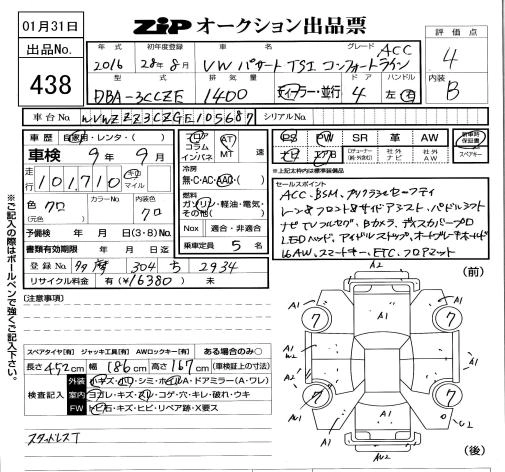 01月31日
出品No.
438
ZIP オークション出品票
評価点
4
内装
B
年式 初年度登録 車名 グレード
2016 28年8月 VW パサート TSI コンフォートライン ACC
型式 排気量 ドア ハンドル
DBA-3CCZE 1400 ディーラー・並行 4 左・右
車台No. WVWZZZ3CZGE105687 シリアルNo.
車歴 自家用・レンタ・( )
車検 9年9月
走行 101,710 キロ マイル
色 クロ カラーNo. 内装色 クロ
(元色)
予備検 年 月 日(3・8)No.
書類有効期限 年 月 日迄
登録No. 多摩 304 ち 2934
リサイクル料金 有(¥16380) 未
フロア コラム インパネ AT MT 速
冷房
無・C・AC・AAC・( )
燃料
ガソリン・軽油・電気・その他( )
Nox 適合・非適合
乗車定員 5 名
PS PW SR 革 AW
社外ナビ 社外AW
新車時保証書
スペアキー
↑上記太枠内は標準装備品
セールスポイント
ACC、BSM、プリクラッシュセーフティ
レーン&フロント&サイドアシスト、パドルシフト
ナビTVフルセグ、Bカメラ、ディスカバープロ
LEDヘッド、アイドルストップ、オートブレーキホールド
16AW、スマートキー、ETC、フロアマット
※ご記入の際はボールペンで強くご記入下さい。
(注意事項)
スペアタイヤ[有] ジャッキ工具[有] AWロックキー[有] ある場合のみ○
長さ 452cm 幅 186cm 高さ 167cm (車検証上の寸法)
検査記入
外装 キズ・ヘコ・シミ・ホイルA・ドアミラー(A・ワレ)
室内 ヨゴレ・キズ・スレ・コゲ・穴・キレ・破れ・ウキ
FW トビ石・キズ・ヒビ・リペア跡・X要ス
スタッドレスT
(前)
A2
A1
A1
7
7
A1
A1
A2
A1
A1
7
7
A1
A2
(後)